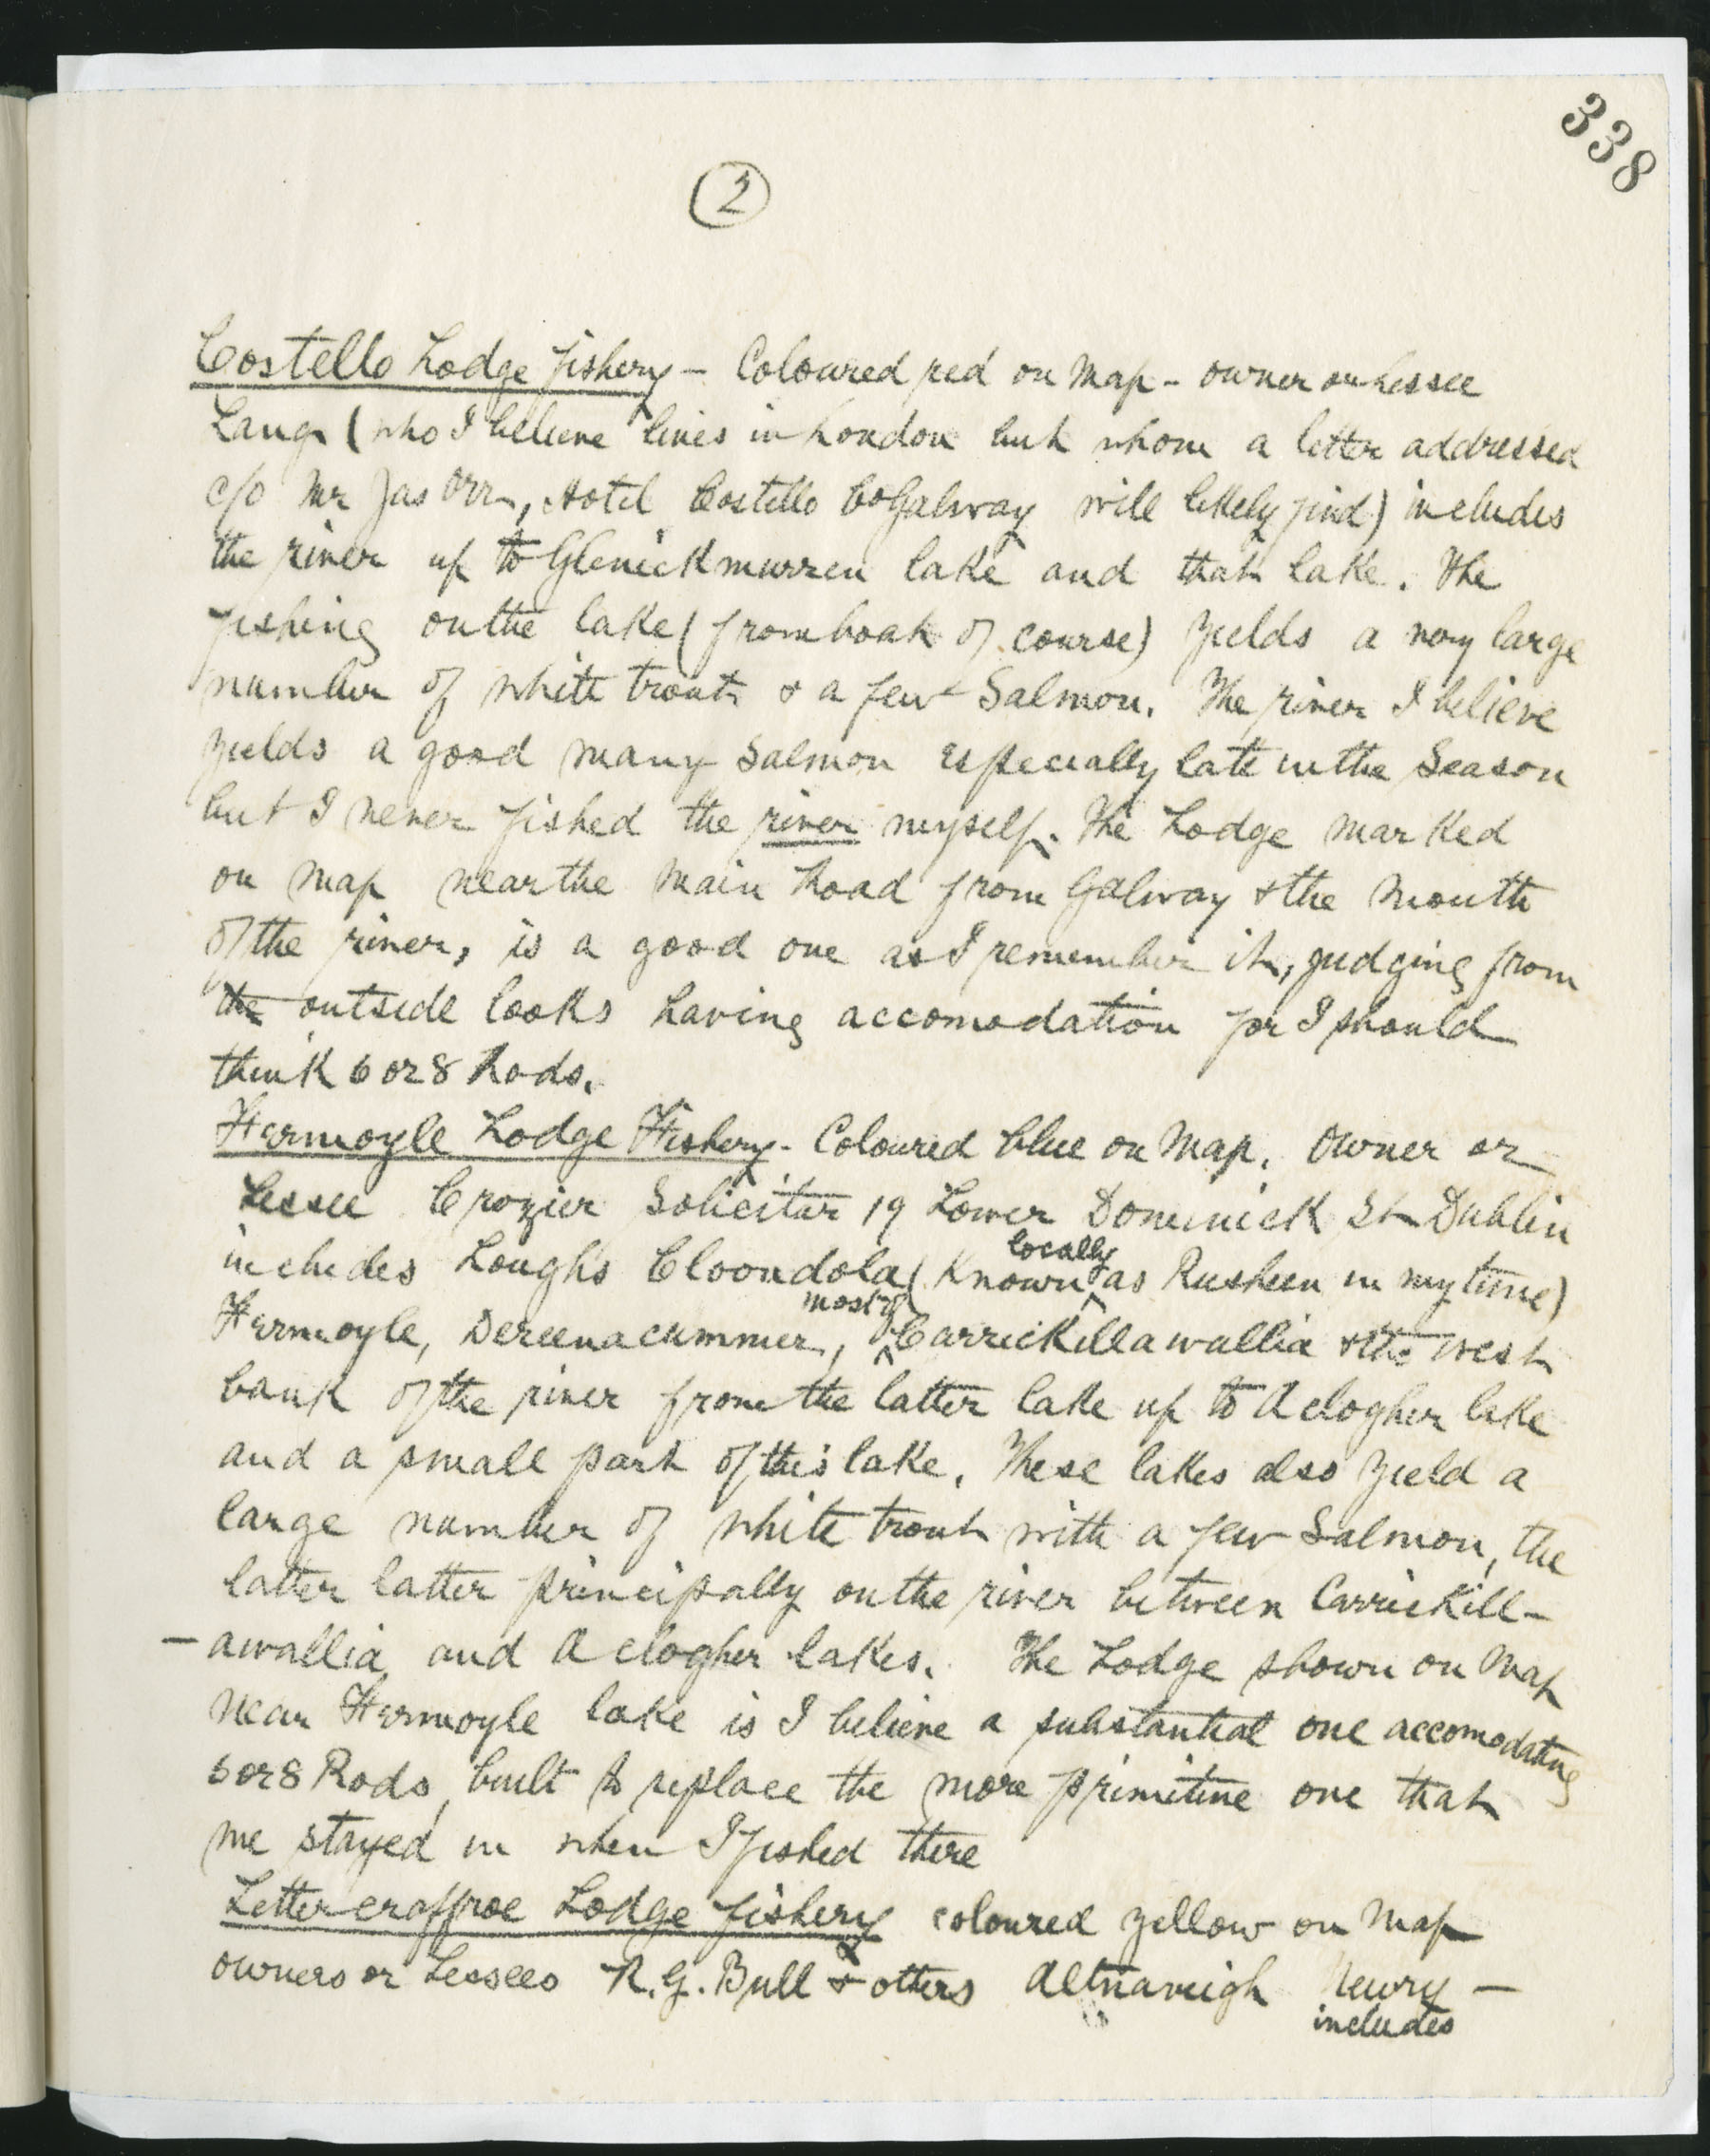 338
2
Costello Lodge fishery - Coloured red on Map - owner or Lessee
Lang (who I believe lives in London but whom a letter addressed
c/o Mr Jas Orr, Hotel Costello Co Galway will likely find) includes
the river up to Glenickmurren lake and that lake. The
fishing on the lake (from boat of course) yields a very large
number of white trout & a few Salmon. The river I believe
yields a good many Salmon especially late in the Season
but I never fished the river myself. The Lodge marked
on Map near the Main Road from Galway & the Mouth
of the river, is a good one as I remember it, judging from
the outside looks having accomodation for I should
think 6 or 8 Rods.
Fermoyle Lodge Fishery - Coloured blue on Map. Owner or
Lessee Crozier Solicitor 19 Lower Dominick St Dublin
includes Loughs Cloondola (Known locally as Rusheen in my time)
Fermoyle, Dereenacummer, most of Carrickillawallia & the West
bank of the river from the latter lake up to Aclogher lake
and a small part of this lake. These lakes also yield a
large number of white trout with a few Salmon, the
latter latter principally on the river between Carrickill-
-awallia and Aclogher lakes. The Lodge shown on Map
near Fermoyle lake is I believe a substantial one accomodating
6 or 8 Rods, built to replace the more primitive one that
we stayed in when I fished there
Lettercraffroe Lodge fishery coloured yellow on Map
owners or Lessees R.G. Bull & others Altnaveigh Newry -
includes